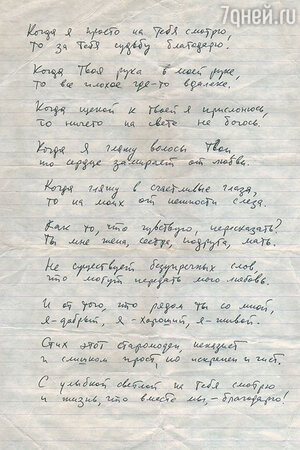 7дней.ru
Когда я просто на тебя смотрю,
то за тебя судьбу благодарю.
Когда твоя рука в моей руке,
то все плохое где-то вдалеке.
Когда щекой к твоей я прислонюсь,
то ничего на свете не боюсь.
Когда я глажу волосы твои
то сердце замирает от любви.
Когда гляжу в счастливые глаза,
то на моих от нежности слеза.
Как то, что чувствую, пересказать?
Ты мне жена, сестра, подруга, мать.
Не существует безупречных слов,
что могут передать мою любовь.
И от того, что рядом ты со мной,
я-добрый, я-хороший, я-живой.
Стих этот старомоден, неказист
и слишком прост, но искренен и чист.
С улыбкой светлой на тебя смотрю
и жизнь, что вместе мы,-благодарю!